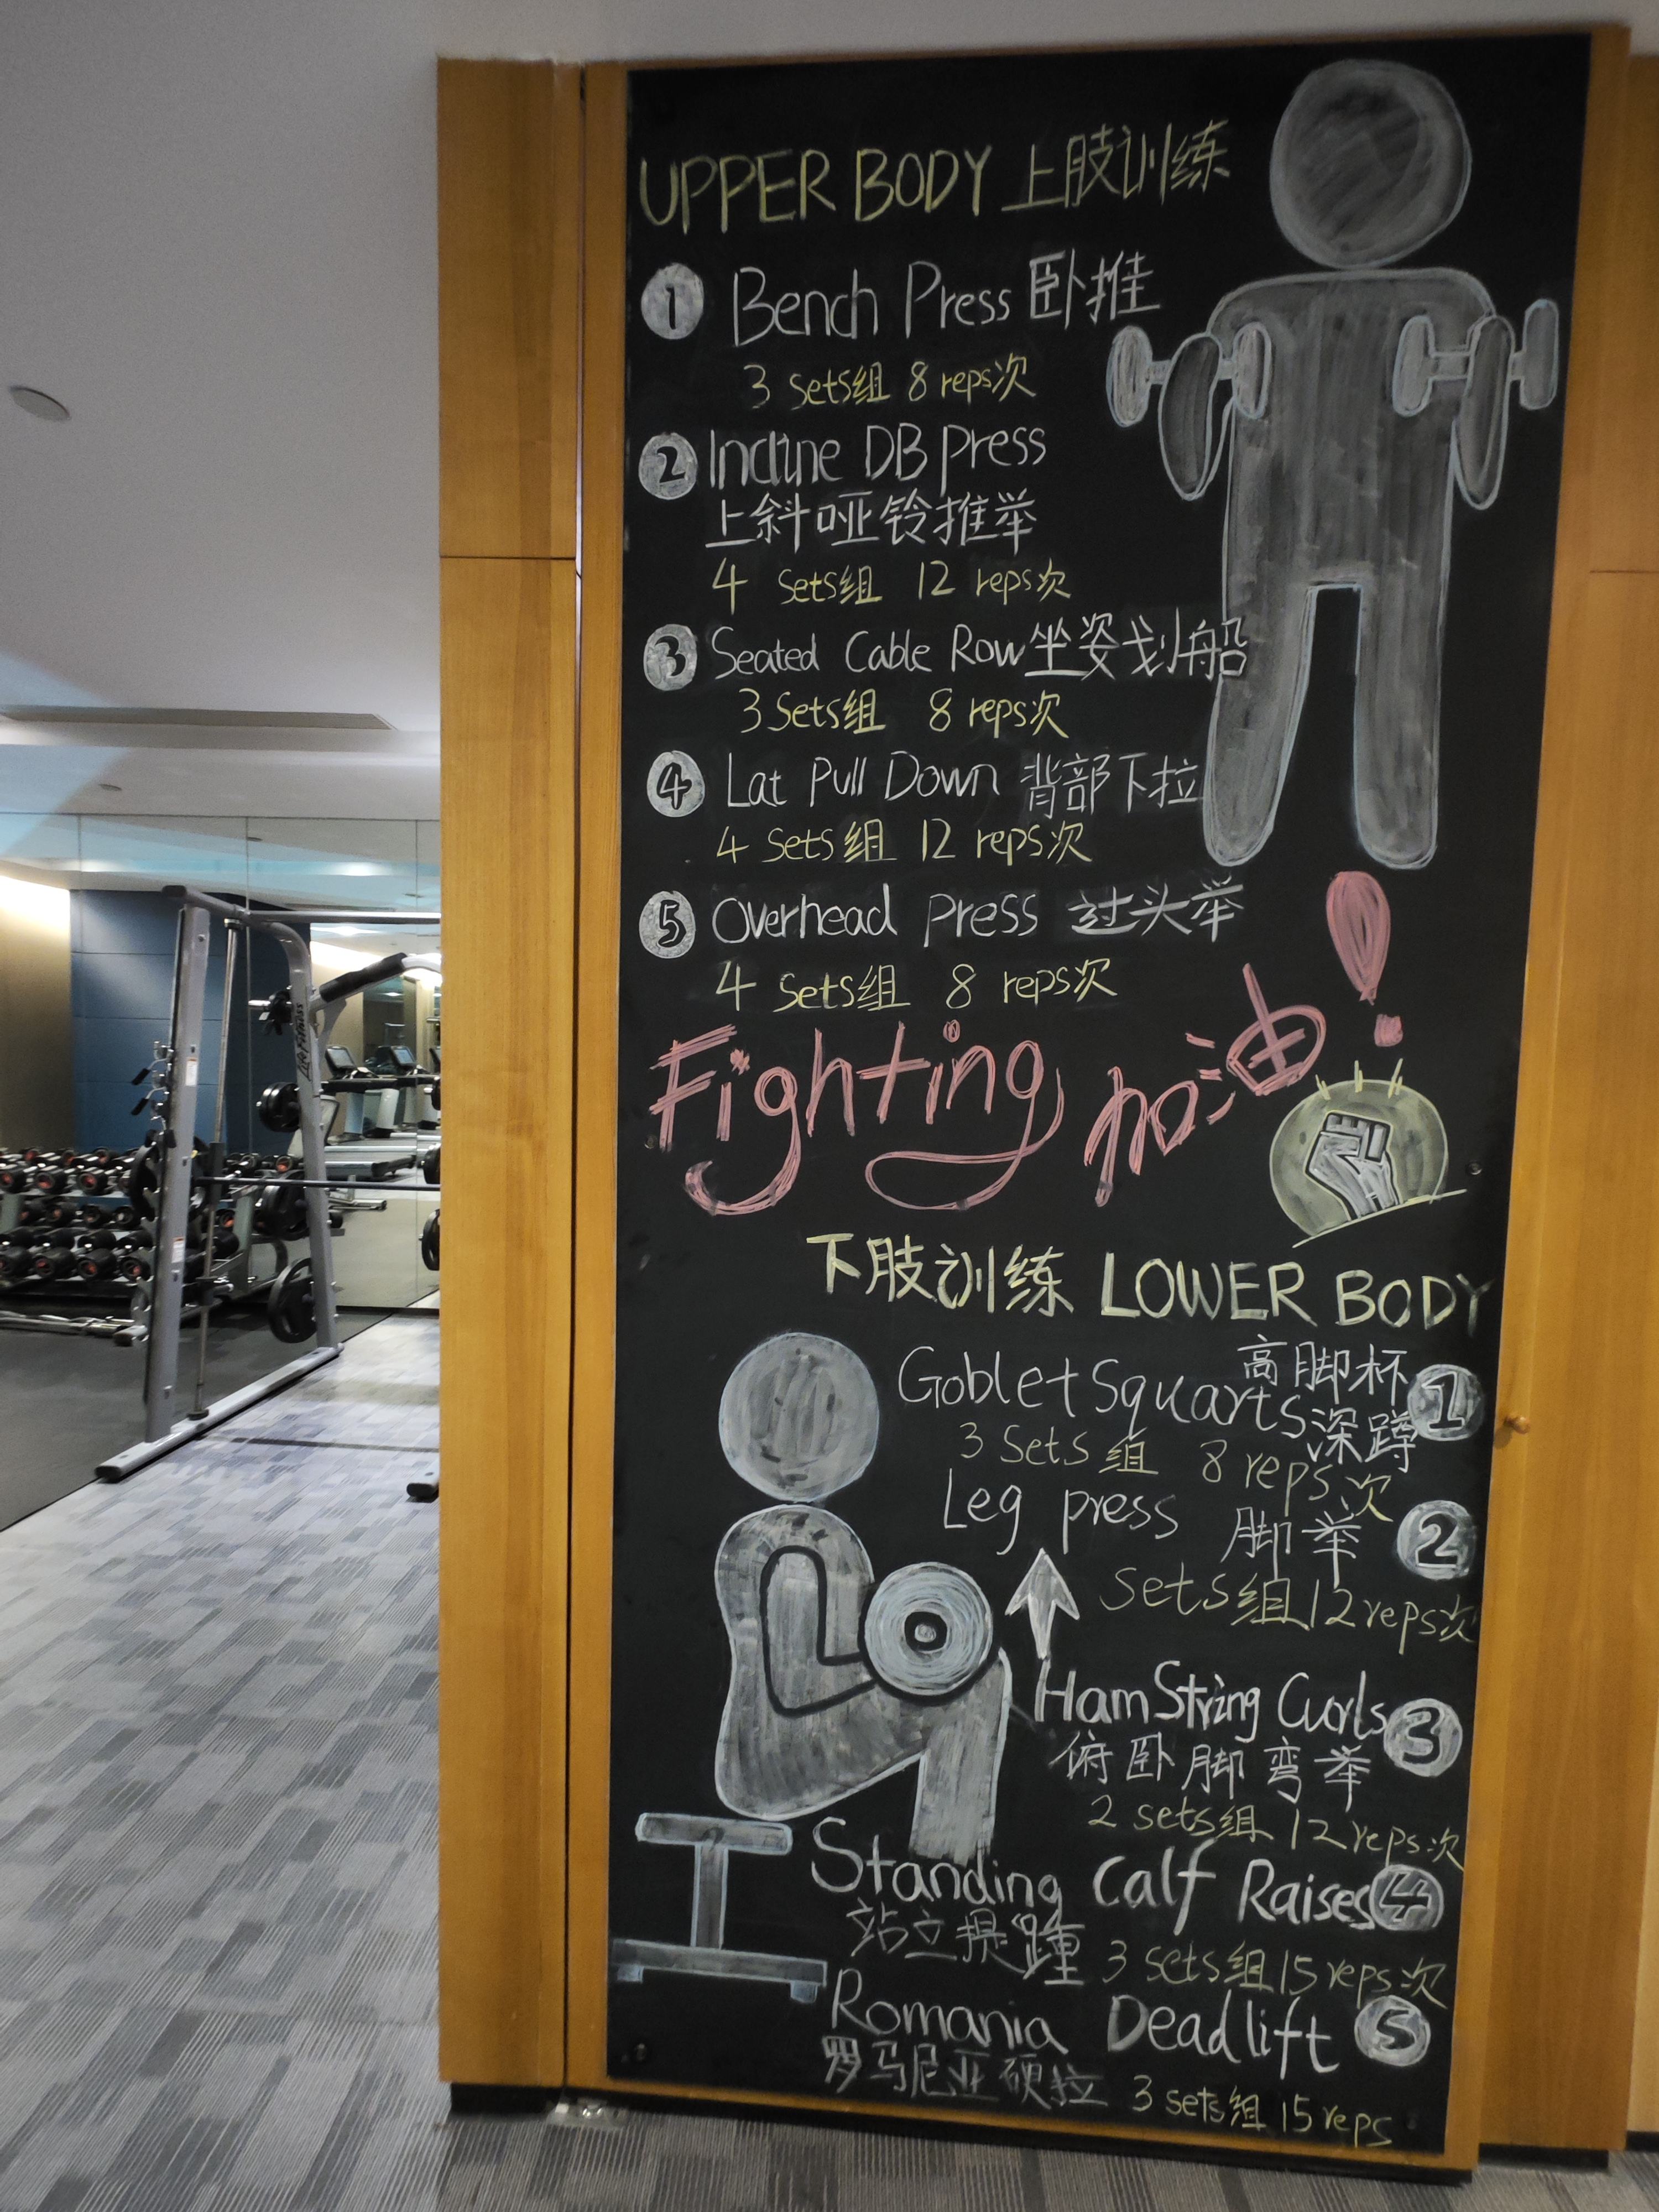 UPPER BODY 上肢训练
1 Bench Press 卧推
3 sets组 8 reps次
2 Incline DB press
上斜哑铃推举
4 sets组 12 reps次
3 Seated Cable Row坐姿划船
3 Sets组 8 reps次
4 Lat Pull Down 背部下拉
4 Sets组 12 reps次
5 Overhead press 过头举
4 Sets组 8 reps次
Fighting 加油!
下肢训练 LOWER BODY
Goblet Squarts 高脚杯深蹲 1
3 Sets组 8 reps次
Leg press 脚举 2
Sets组 12 reps次
HamString Curls 3
俯卧脚弯举
2 sets组 12 reps次
Standing Calf Raises 4
站立提踵 3 sets组 15 reps次
Romania Deadlift 5
罗马尼亚硬拉 3 sets组 15 reps
Life Fitness